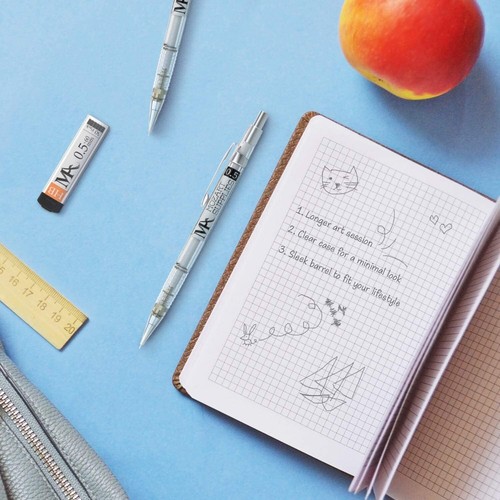 MA
0.5
HB
MA
MOZART
0.5
1. Longer art session
2. Clear case for a minimal look
3. Sleek barrel to fit your lifestyle
16 17 18 19 20